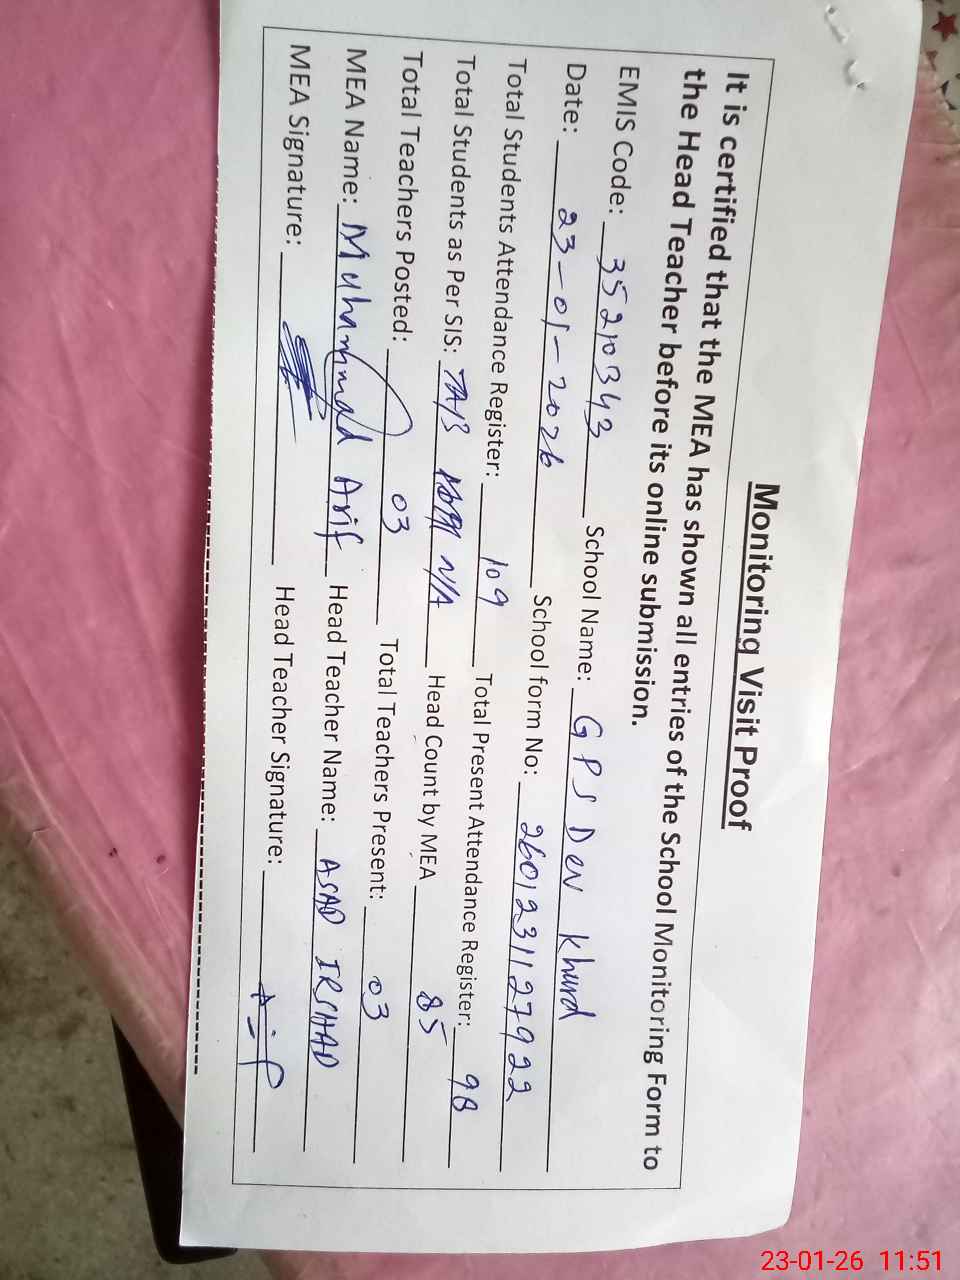 Monitoring Visit Proof
It is certified that the MEA has shown all entries of the School Monitoring Form to
the Head Teacher before its online submission.
EMIS Code: 35210343 School Name: GPS Dev Khurd
Date: 23-01-2026 School form No: 2601231127922
Total Students Attendance Register: 109 Total Present Attendance Register: 98
Total Students as Per SIS: N/A Head Count by MEA 85
Total Teachers Posted: 03 Total Teachers Present: 03
MEA Name: Muhammad Arif Head Teacher Name: ASAD IRSHAD
MEA Signature: Head Teacher Signature:
23-01-26 11:51